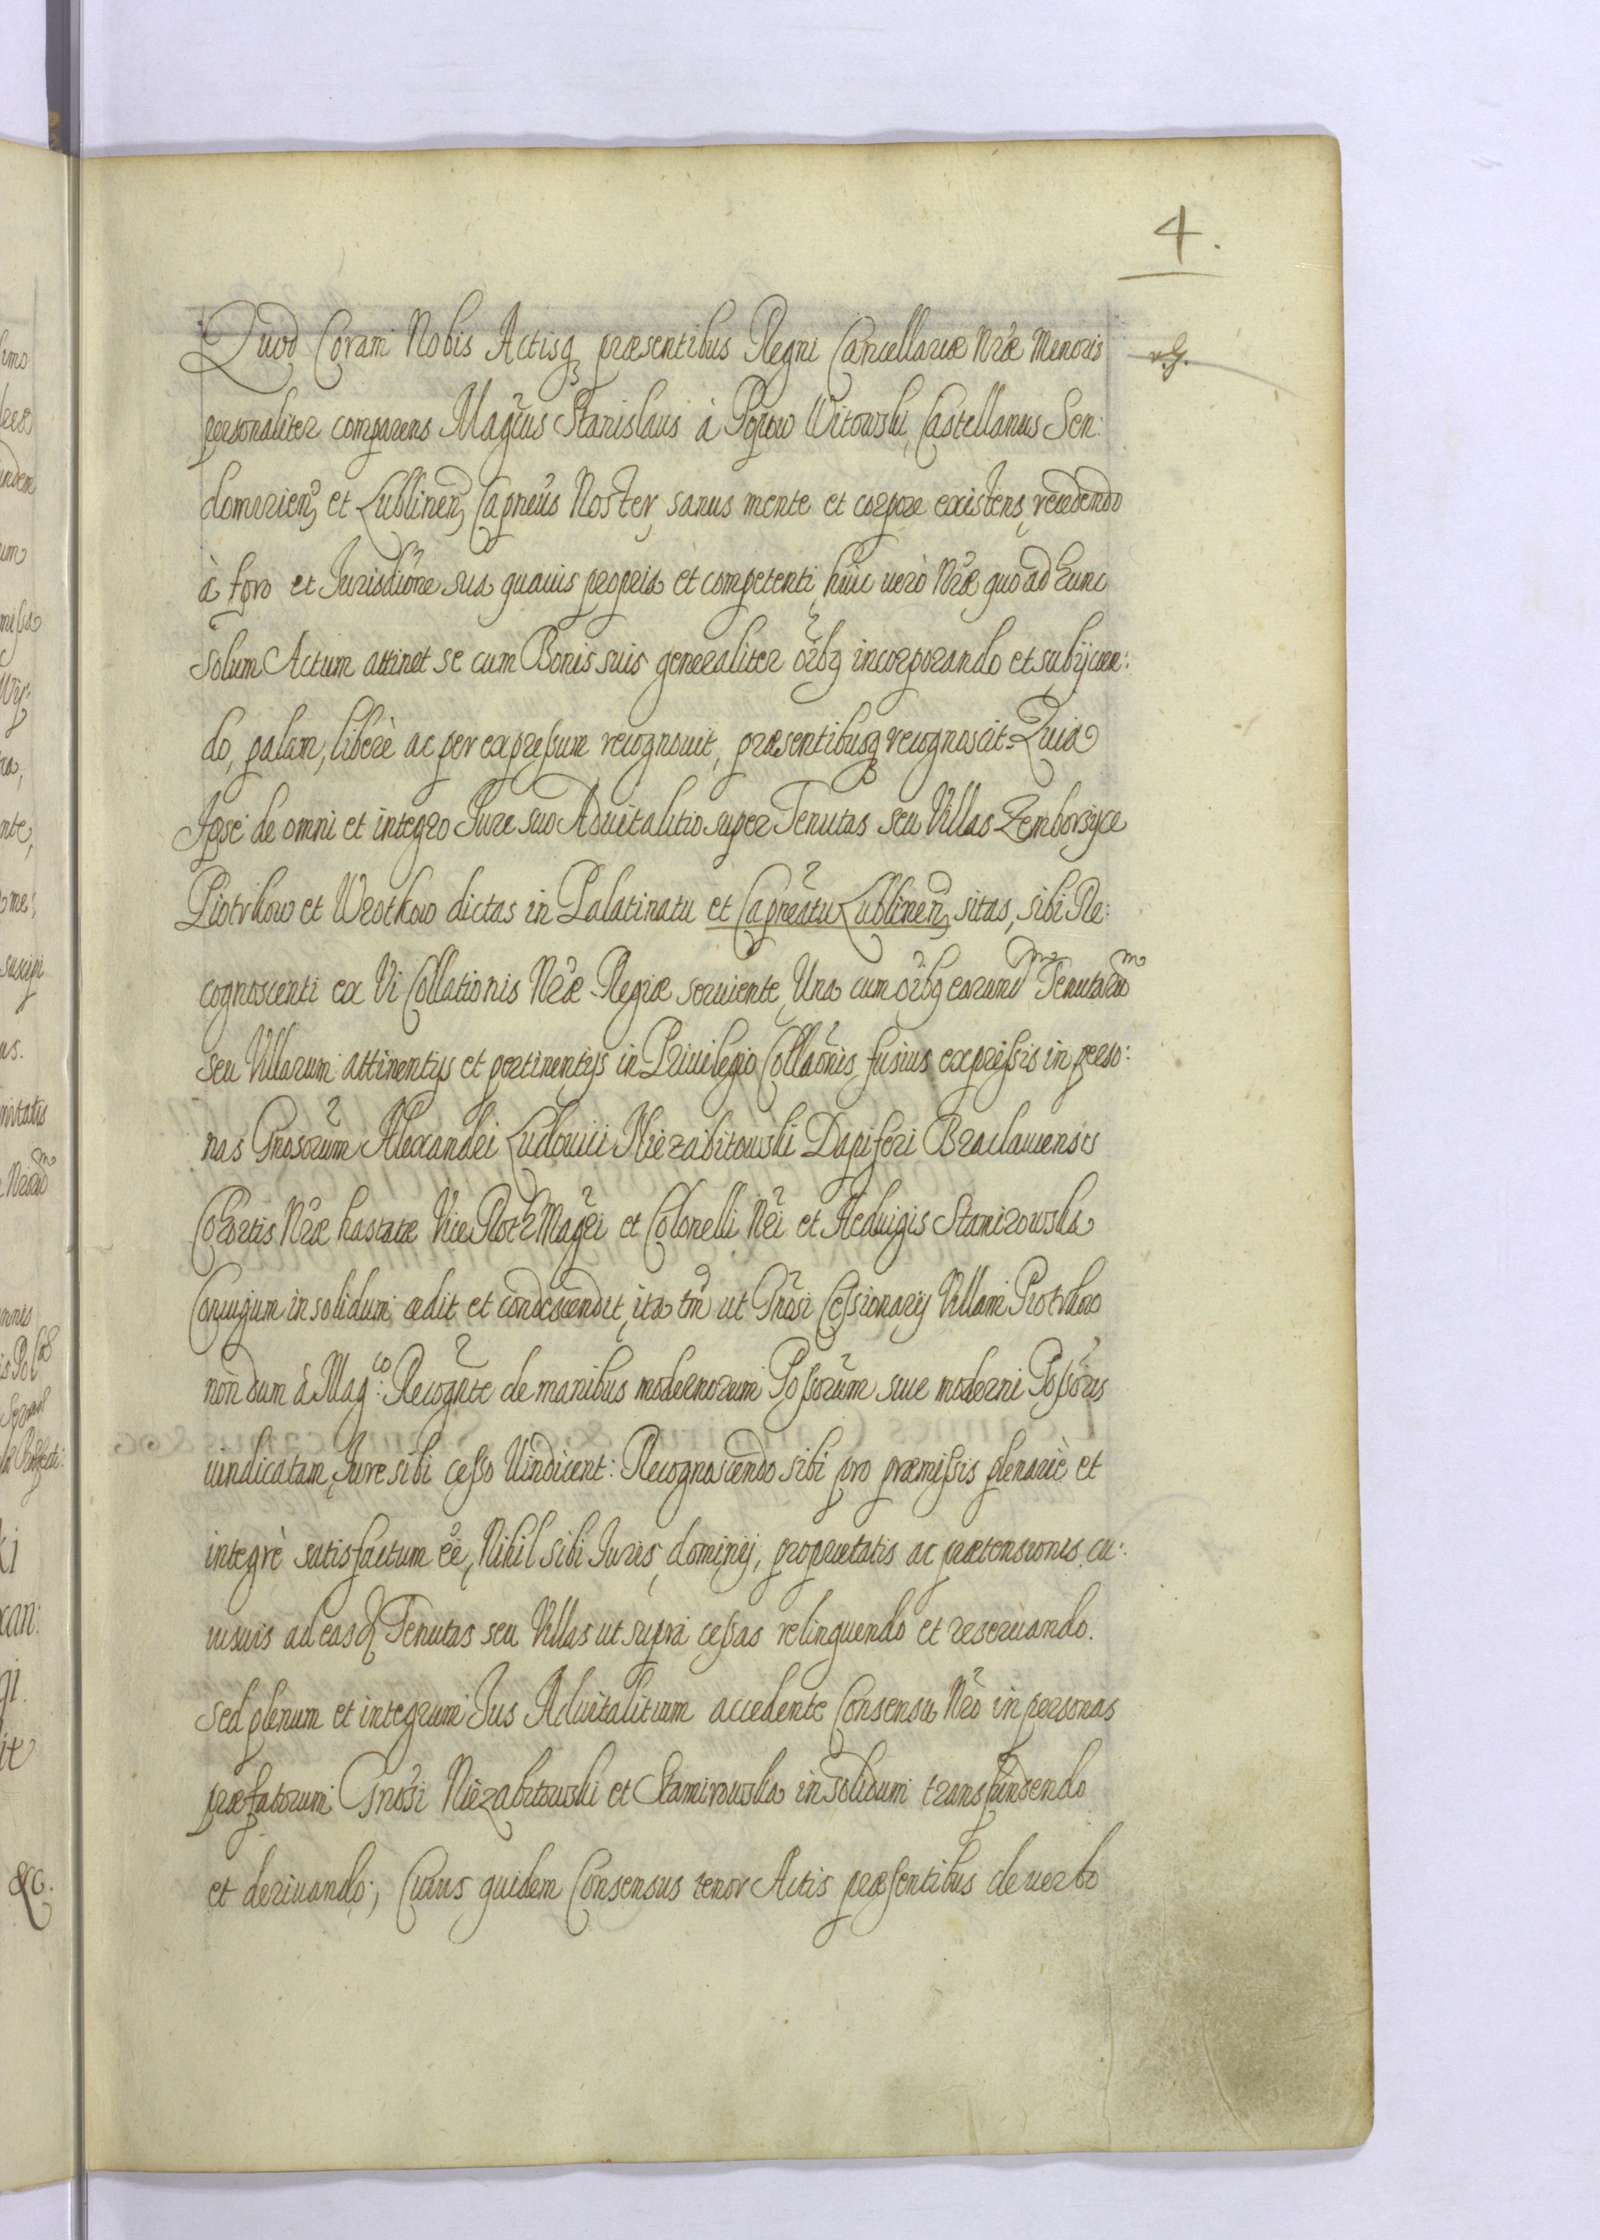 4.
Quod Coram Nobis Actisq3 præsentibus Regni Cancellariæ Nræ Minoris
personaliter comparens Magcus Stanislaus à Popow Witowski, Castellanus Sen:
domirien, et Lublinen, Capneus Noster, sanus mente et corpore existens, recedendo
à foro et Jurisdiõne sua quauis propria et competenti, huic uerò Nræ quo ad hunc
solum Actum attinet se cum Bonis suis generaliter oĩbq incorporando et subijcien:
do, palam, liberè ac per expressum recognouit, præsentibusq3 recognoscit. Quia
Ipse de omni et integro Jure suo Aduitalitio super Tenutas seu Villas Zemborzyce
Piotrkow et Wrotkow dictas in Palatinatu et Capneatu Lublinen, sitas, sibi Re:
cognoscenti ex Vi Collationis Nræ Regiæ seruiente, Una cum oĩbq earund Tenutarum
seu Villarum attinentijs et pertinentijs in Priuilegio Collaõnis fusius expressis in perso:
nas Gnosorum Alexandri Ludouici Niezabitowski Dapiferi Braclauiensis
Cohortis Nræ hastatæ Vice Roth Magri et Colonelli Nri et Heduigis Stamirowska
Coniugum in solidum; cedit et condescendit, ita tm ut Gnosi Cessionarij Villam Piotrkow
non dum à Mag:co Recognte de manibus modernorum Possorum siue moderni Possoris
uindicatam, Jure sibi cesso Uindicent: Recognoscendo sibi pro præmissis plenariè et
integrè satisfactum eẽ, Nihil sibi Juris, dominij, proprietatis ac prætensionis cu:
iusuis ad easd Tenutas seu Villas ut supra cessas relinquendo et reseruando.
Sed plenum et integrum Jus Aduitalitium accedente Consensu Nro in personas
præfatorum Gnosi Niezabitowski et Stamirowska in solidum transfundendo
et deriuando; Cuius quidem Consensus tenor Actis præsentibus de uerbo